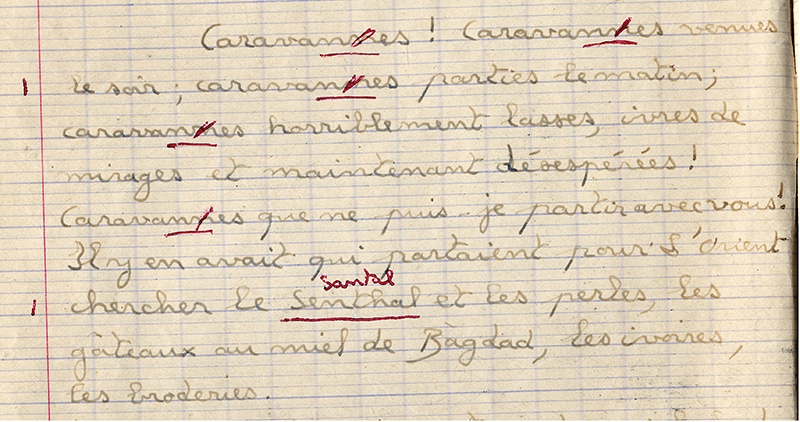 Caravannes ! Caravannes venues
1 le soir ; caravannes parties le matin ;
caravannes horriblement lasses, ivres de
mirages et maintenant désespérées !
Caravannes que ne puis-je partir avec vous !
Il y en avait qui partaient pour L'Orient
santal
1 chercher le Senthal et les perles, les
gâteaux au miel de Bàgdad, les ivoires,
les broderies.